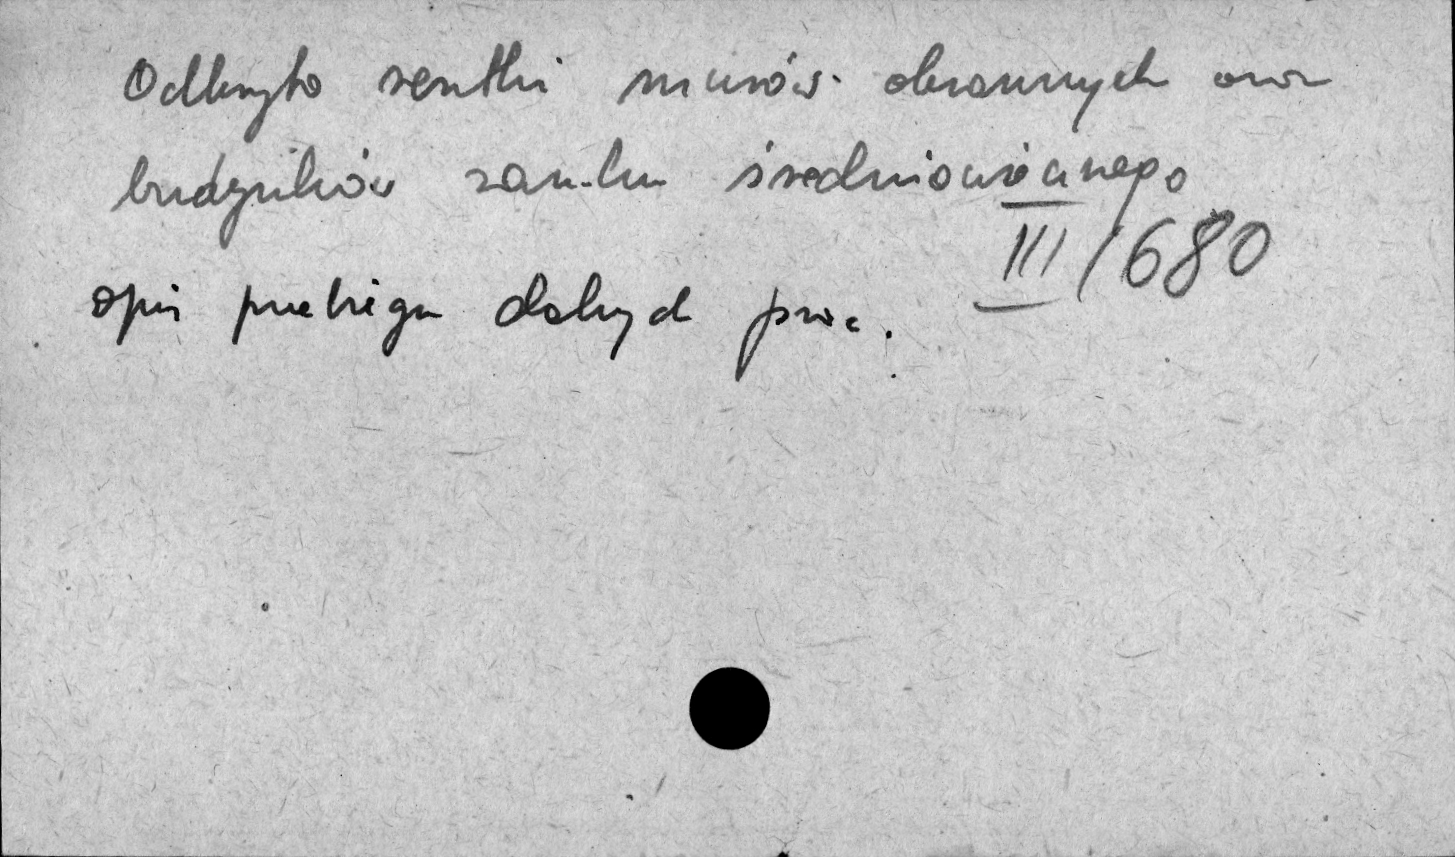 Odkryto resztki murów obronnych oraz
budynków zamku średniowiecznego
III/680
opis przebiegu dalszych prac.